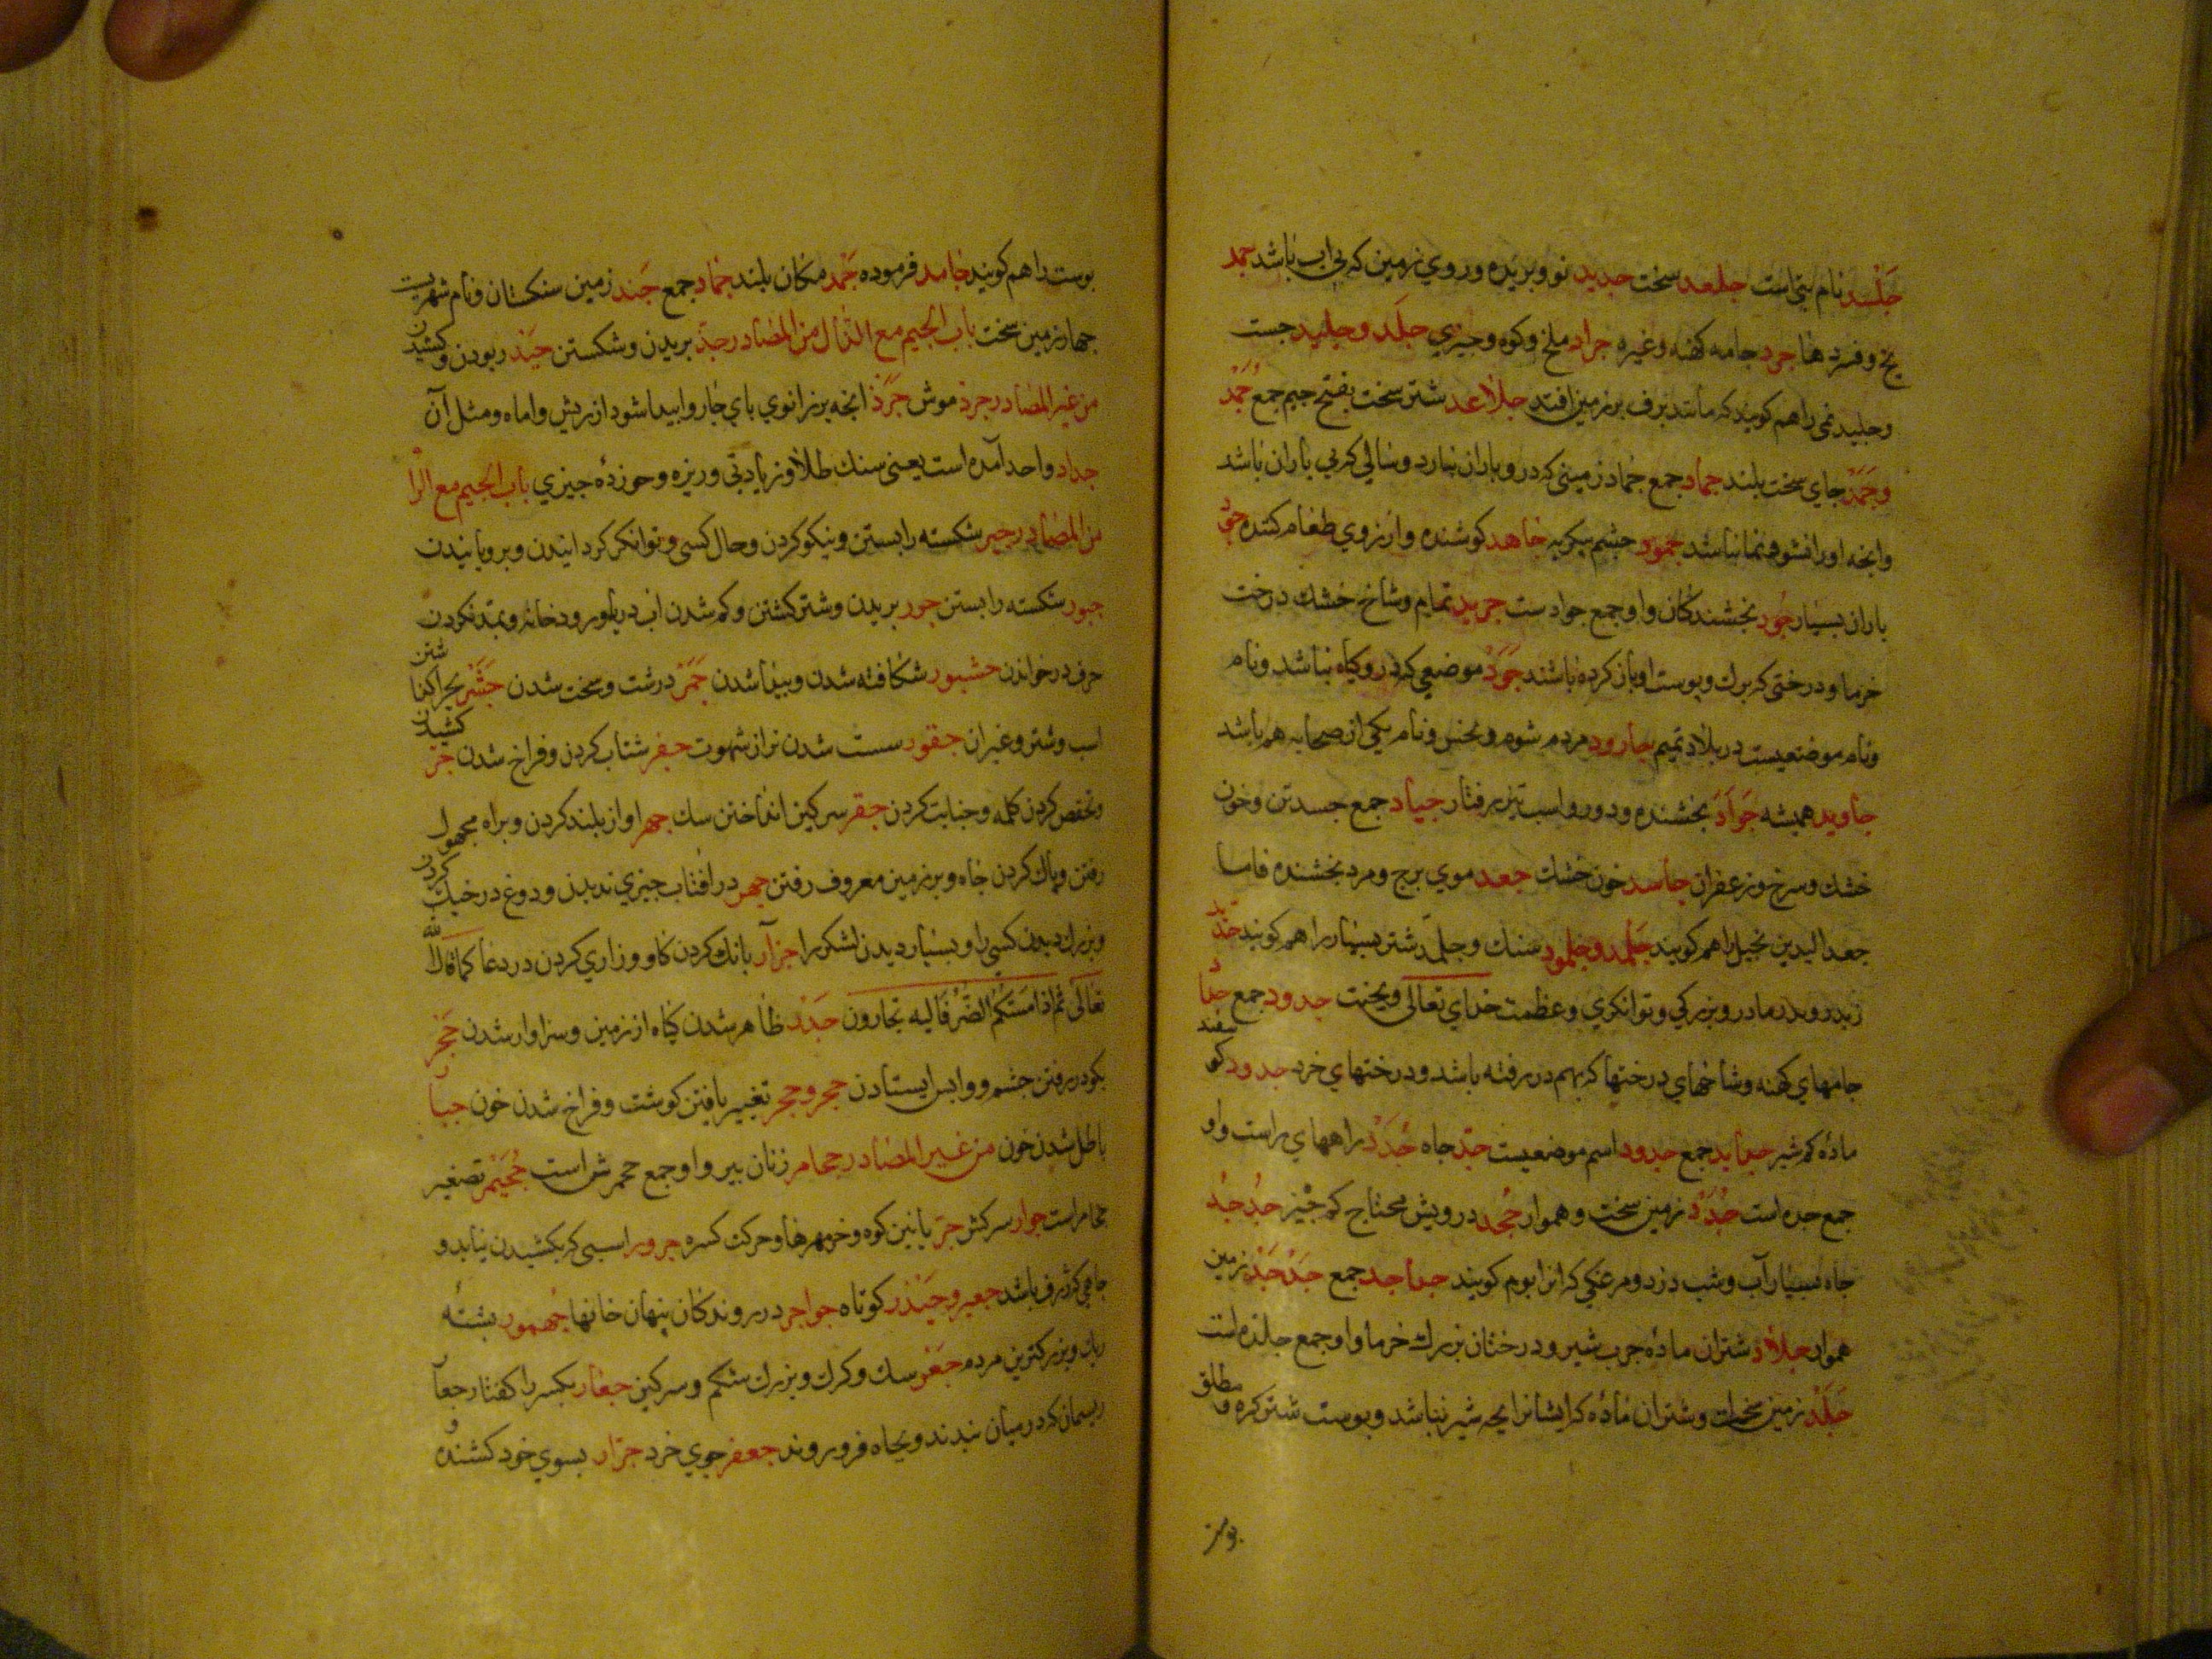 جَلْسَد نام بتی است جلعد سخت جدید نو و بریده و روی زمین که بی اب باشد جمد
یخ و فسردها جرد جامه کهنه وغیره جراد ملخ و کوه و چیزی جلَد و جلید جست
و جلید نمی را هم کویند که مانند برف بر زمین افتد جلاعد شتر سخت بفتح جیم جمع جُمُد
وجَمَد جای سخت بلند جماد جمع جماد زمینی که درو باران نبارد و سالی که بی باران باشد
وانچه اورا نشو و نما نباشد جمود چشم بیکریه جاهد کوشنده و ارزوی طعام کننده جود
باران بسیار جُود بخشندکان واو جمع جوادست جرید تمام و شاخ خشک درخت
خرما و درختی که برک و پوست او باز کرده باشند جَرَد موضعی که درو کیاه نباشد و نام
ونام موضعیست در بلاد تمیم جارود مردم شوم و نحس و نام یکی از صحابه هم باشد
جاوید همیشه جَوَاد بخشنده و دورو اسب تیز رفتار جیاد جمع جسد تن و خون
خشک و سرخ و زعفران جاسد خون خشک جعد موی برج و مرد بخشنده فاما
جعد الیدین بخیل را هم کویند جَلمد و جلمود سنک و جلمد شتر بسیار را هم کویند جد
پدر و پدر مادر و بزرکی و توانکری و عظمت خدای تعالی و بخت جدود جمع جداد
جامهای کهنه و شاخهای درختها که بهم در رفته باشد و درختهای خرد جدود کوسفند
ماده کم شیر جداید جمع جدود اسم موضعیست جدّ چاه جُدَد راههای راست واو
جمع جده است جَدَد زمین سخت و هموار جحد درویش محتاج کم چیز جدجد
چاه بسیار آب و شب دزد و مرغکی که انرا بوم کویند جداجد جمع جَدْجَد زمین
هموار جلاد شتران ماده چرب شیر و درختان بزرک خرما واو جمع جلده است
جَلَد زمین سخت و شتران ماده که ایشانرا بچه شیر نباشد و پوست شتر کره و مطلق
پوست
پوست را هم کویند جامد فرموده جَمَد مکان بلند جماد جمع جَند زمین سنکستان و نام شهریست
جماد زمین سخت باب الجیم مع الذال من المصادر جذ بریدن و شکستن جبذ ربودن و کشیدن
من غیر المصادر جرذ موش جَرَذ انچه بر زانوی پای چاروا پیدا شود از ریش و اماه و مثل آن
جذاذ واحد آمده است یعنی سنک طلا و زیادتی و ریزه و خورده چیزی باب الجیم مع الرا
من المصادر جبر شکسته را بستن و نیکو کردن و حال کسی و توانکر کردانیدن و برویانیدن
جبور شکسته را بستن جزر بریدن و شتر کشتن و کم شدن اب دریا و رودخانه و بمد نکردن
حرف در خواندن جشور شکافته شدن و پیدا شدن جَمَر درشت و سخت شدن جَشَر بچرا کذاشتن
اسب و شتر و غیران جفور سست شدن نر از شهوت جفر شتاب کردن و فراخ شدن جر کشیدن
و تخفص کردن کلمه و جنایت کردن جقر سرکین انداختن سک جهر اواز بلند کردن و براه مجهول
رفتن و پاک کردن چاه و بر زمین معروف رفتن جهر در افتاب چیزی ندیدن و دوغ در خیک کردن
و بزرک دیدن کسی را و بسیار دیدن لشکر را جزار بانک کردن کاو و زاری کردن در دعا کما قال الله
تعالی ثم اذا مسکم الضر فالیه تجارون جَدَر ظاهر شدن کیاه از زمین و سزاوار شدن جَحَر
بکو در رفتن چشم و واپس ایستادن جحر و جحر تغییر یافتن کوشت و فراخ شدن خون جبار
باطل شدن خون من غیر المصادر جحامر زنان پیر واو جمع جحمرش است جُحَیمر تصغیر
جحامر است جوار سرکش جر پایین کوه و خرمهرها و حرکت کسره جرور اسبی که بکشیدن نیاید و
چاهی که ژرف باشد جعیر و جَیذر کوتاه جواجر در روندکان پنهان خانها جمهور پشته
ریک و بزرکترین مردم جَعْر سک و کرک و بزرک شکم و سرکین جعار بکسر را کفتار جعار
ریسمان که در میان بندند و بچاه فرو روند جعفر جوی خرد جزار بسوی خود کشنده و